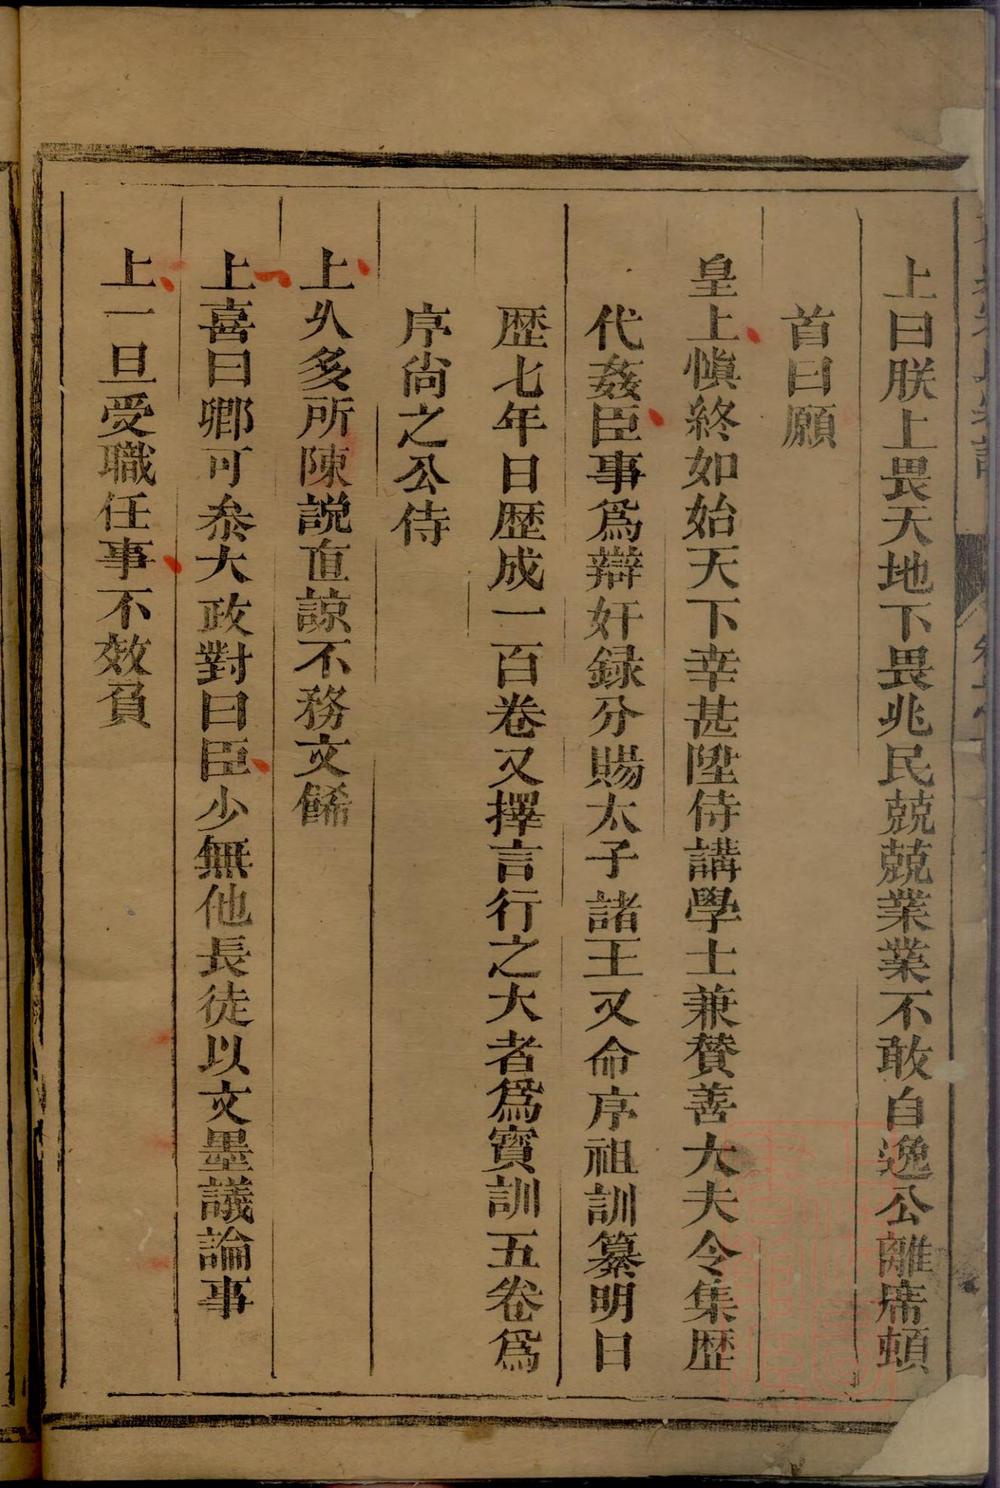 上曰朕上畏天地下畏兆民兢兢業業不敢自逸公離席頓
首曰願
皇上慎終如始天下幸甚陞侍講學士兼贊善大夫令集歷
代姦臣事爲辯奸録分賜太子諸王又命序祖訓纂明日
歴七年日歴成一百卷又擇言行之大者爲寶訓五卷爲
序尚之公侍
上乆多所陳説直諒不務文餙
上喜曰卿可叅大政對曰臣少無他長徒以文墨議論事
上一旦受職任事不效負